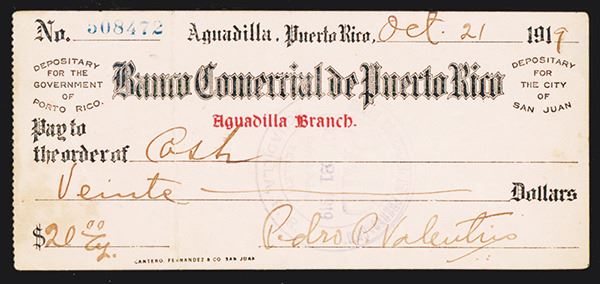 No. 508472 Aguadilla, Puerto Rico, Oct. 21 1919
DEPOSITARY FOR THE GOVERNMENT OF PORTO RICO.
Banco Comercial de Puerto Rico
DEPOSITARY FOR THE CITY OF SAN JUAN
Aguadilla Branch.
Pay to
the order of Cash
Veinte Dollars
$20 00/ Pedro P. Valentin
CANTERO, FERNANDEZ & CO SAN JUAN